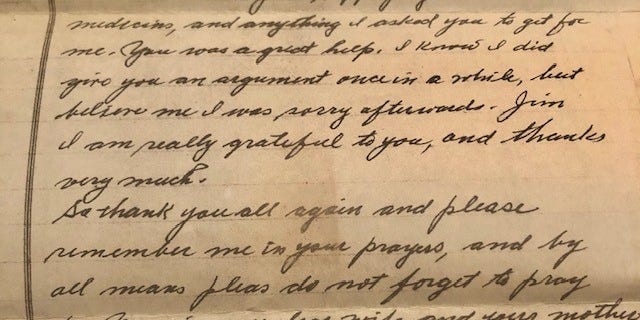 medecins, and anything I asked you to get for
me. You was a great help. I know I did
give you an argument once in a while, but
believe me I was sorry afterwards. Jim
I am really grateful to you, and thanks
very much.
So thank you all again and please
remember me in your prayers, and by
all means pleas do not forget to pray
wife and your mother